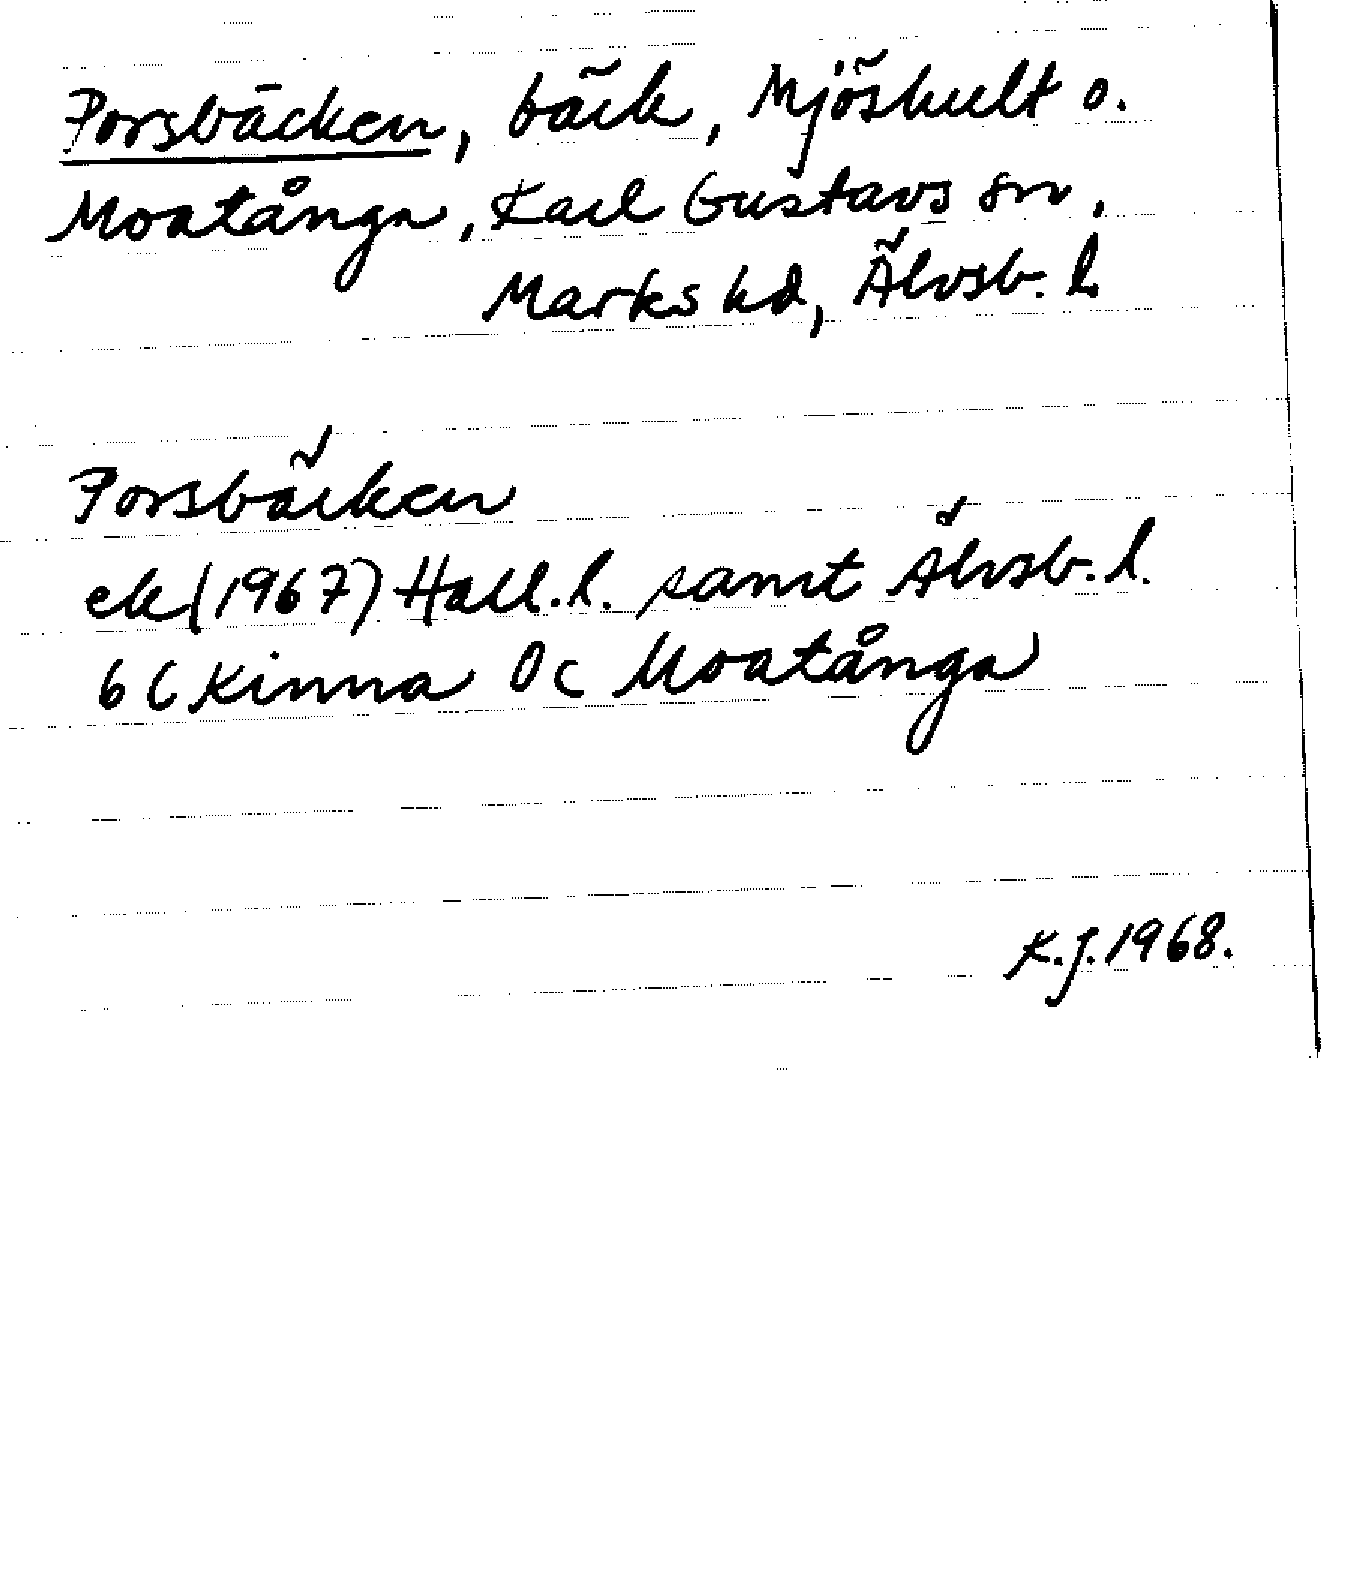 Forsbäcken, bäck, Mjöshult o.
Moatånga, Karl Gustavs sn,
Marks hd, Älvsb. l.
Forsbäcken
ek (1967) Hall. l. samt Älvsb. l.
6 C Kinna 0c Moatånga
K.J. 1968.